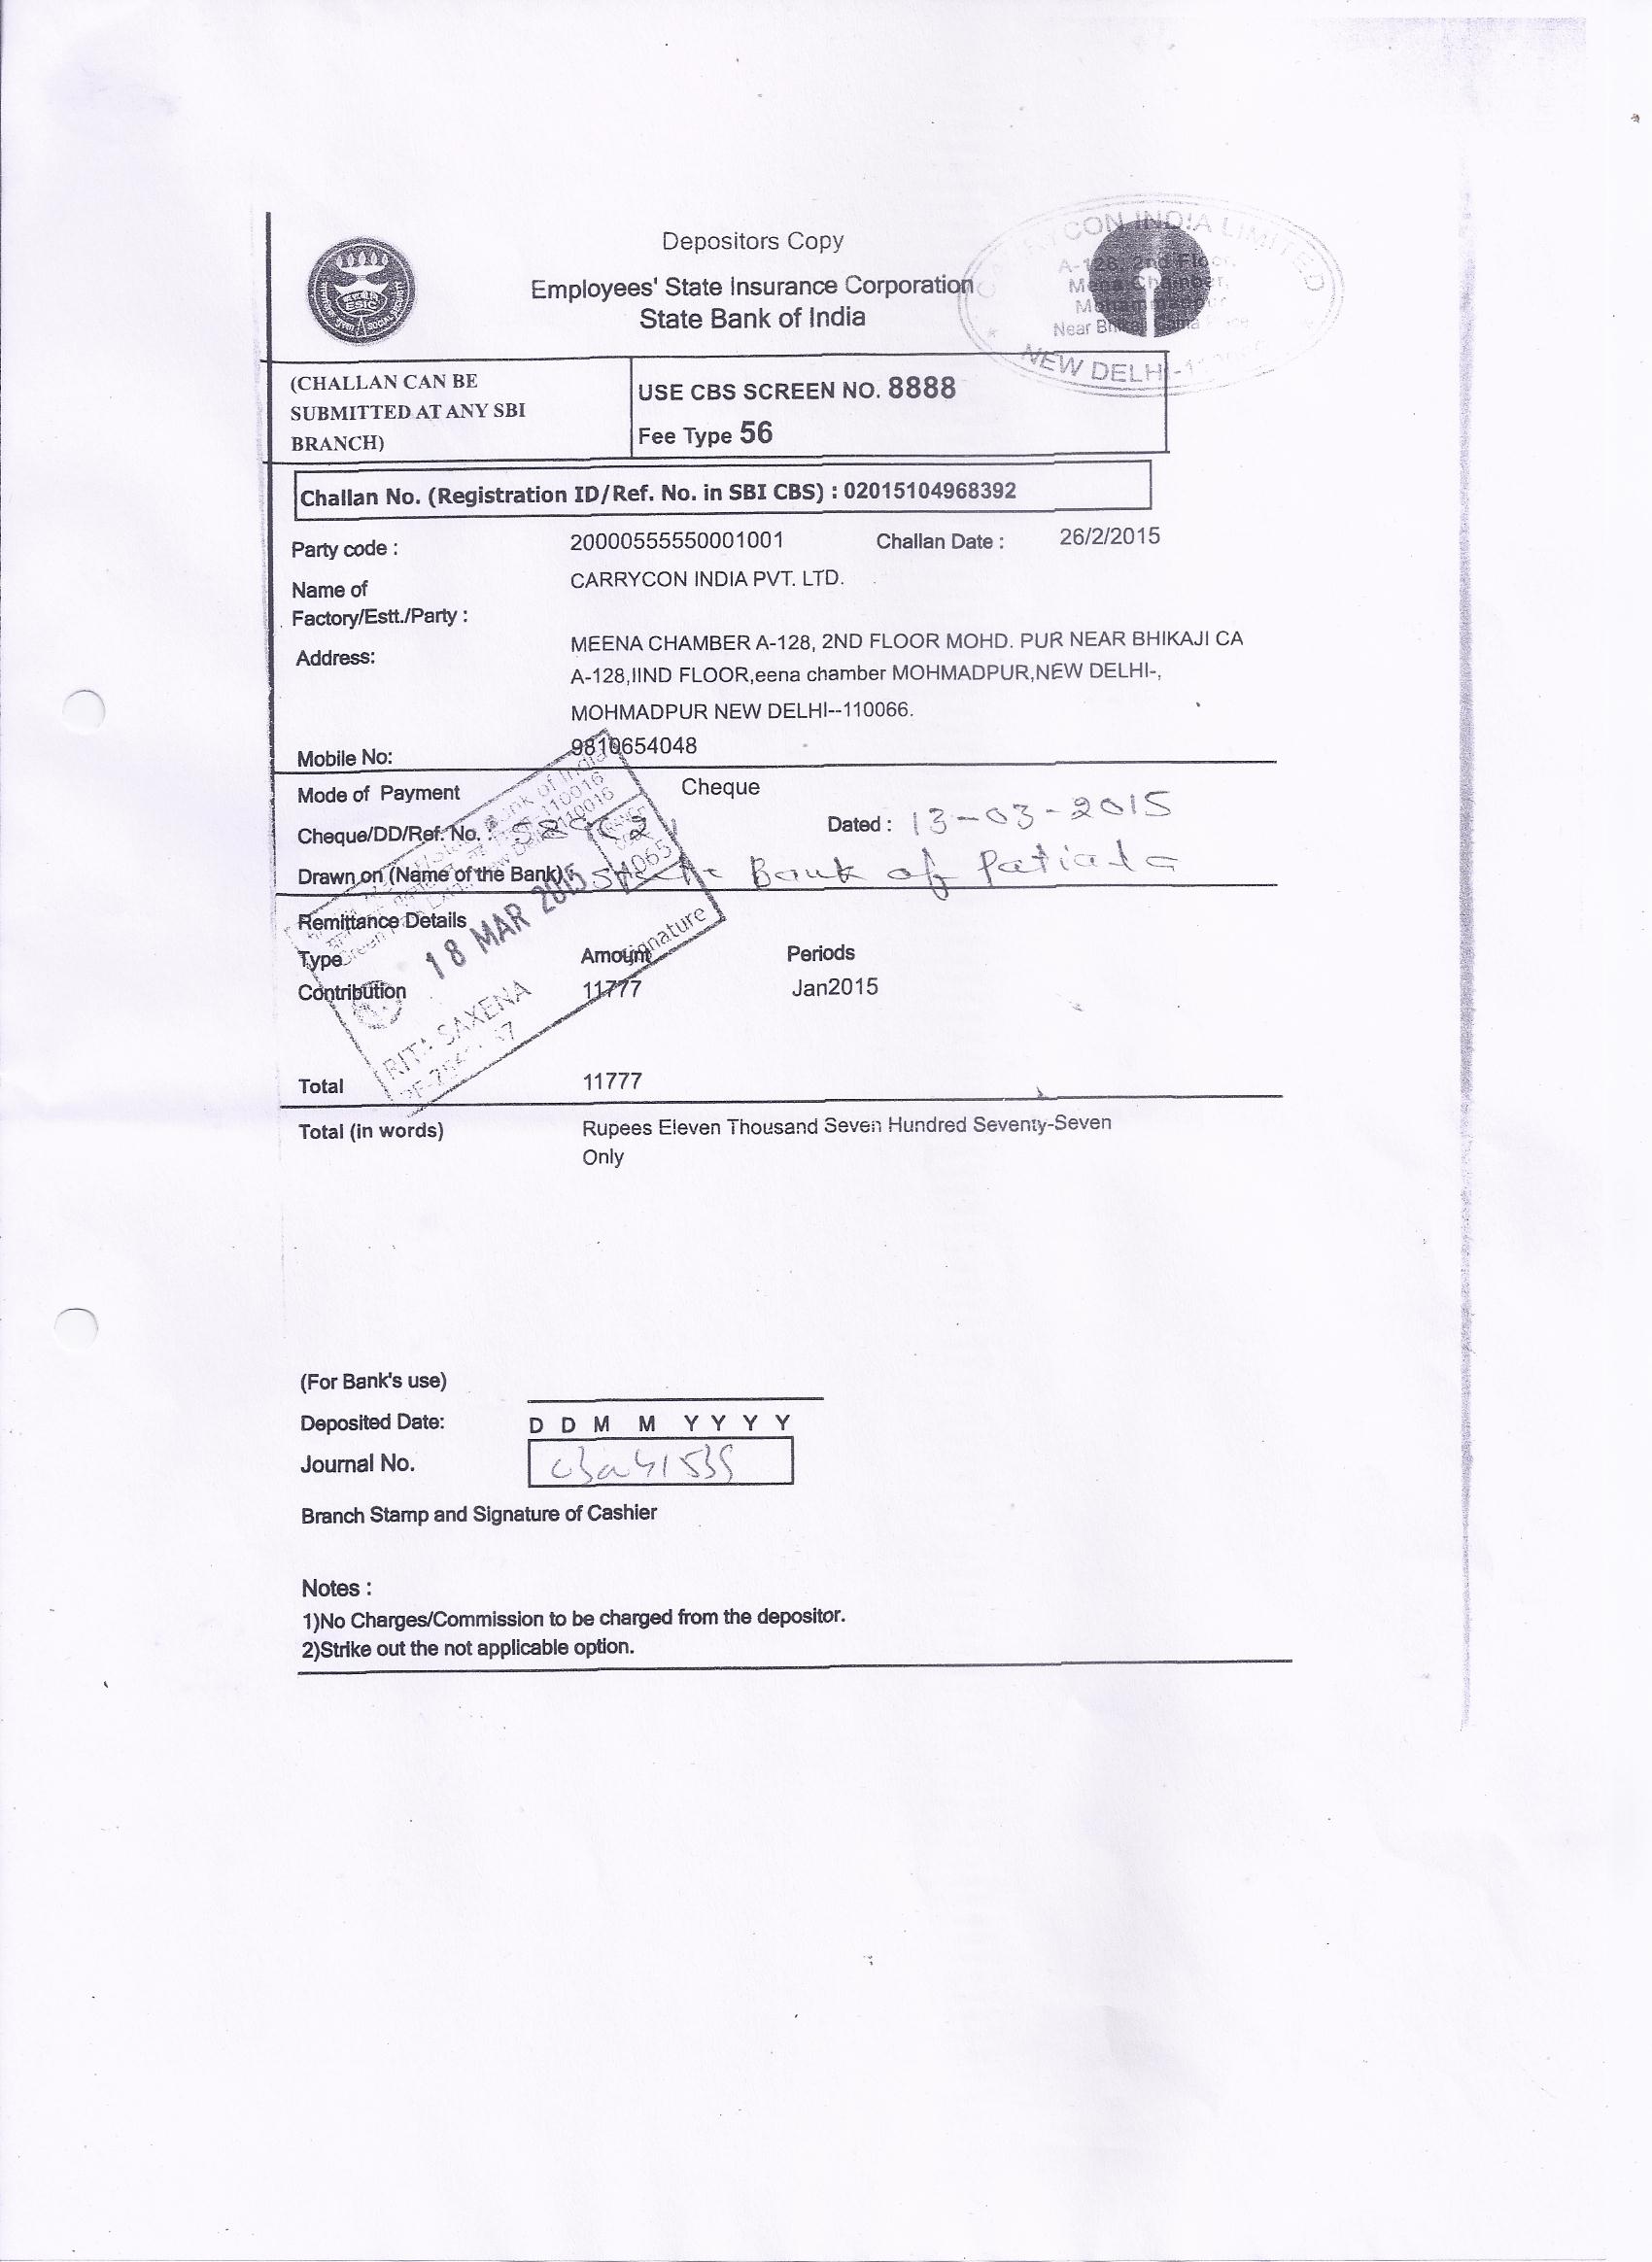 Depositors Copy
Employees' State Insurance Corporation
State Bank of India
ESIC
CARRYCON INDIA LIMITED
A-128, 2nd Floor,
Chamber,
Near
NEW DELHI
(CHALLAN CAN BE
SUBMITTED AT ANY SBI
BRANCH)
USE CBS SCREEN NO. 8888
Fee Type 56
Challan No. (Registration ID/Ref. No. in SBI CBS) : 02015104968392
Party code : 20000555550001001 Challan Date : 26/2/2015
Name of CARRYCON INDIA PVT. LTD.
Factory/Estt./Party :
MEENA CHAMBER A-128, 2ND FLOOR MOHD. PUR NEAR BHIKAJI CA
Address:
A-128,IIND FLOOR,eena chamber MOHMADPUR,NEW DELHI-,
MOHMADPUR NEW DELHI--110066.
Mobile No: 9810654048
Mode of Payment Cheque
Cheque/DD/Ref. No. : Dated : 13-03-2015
Drawn on (Name of the Bank) State Bank of Patiala
Bank of India
110016
18 MAR 2015
Signature
RITA SAXENA
Remittance Details
Type Amount Periods
Contribution 11777 Jan2015
Total 11777
Total (in words) Rupees Eleven Thousand Seven Hundred Seventy-Seven
Only
(For Bank's use)
Deposited Date: D D M M Y Y Y Y
Journal No.
Branch Stamp and Signature of Cashier
Notes :
1)No Charges/Commission to be charged from the depositor.
2)Strike out the not applicable option.